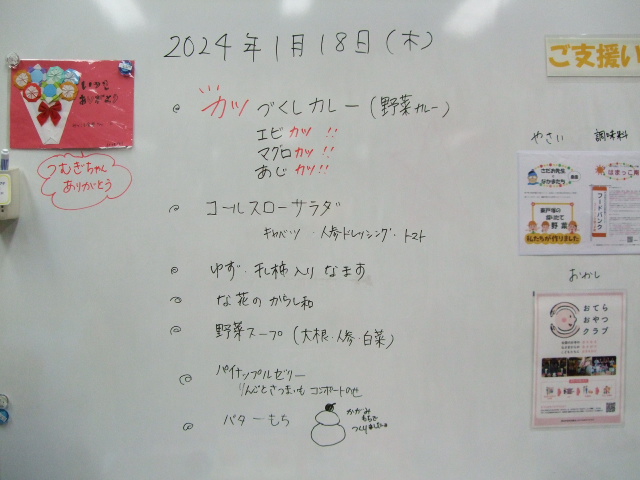 2024年1月18日(木)
カツづくしカレー(野菜カレー)
エビカツ!!
マグロカツ!!
あじカツ!!
コールスローサラダ
キャベツ・人参ドレッシング・トマト
ゆず・干し柿入りなます
な花のからし和
野菜スープ(大根・人参・白菜)
パイナップルゼリー
りんごとさつまいもコンポートのせ
バターもち
かがみ
もちで
つくりました
いつも
ありがとう
つむぎちゃん
ありがとう
ご支援い
やさい
調味料
フードバンク
野菜
私たちが作りました
おかし
おてら
おやつ
クラブ